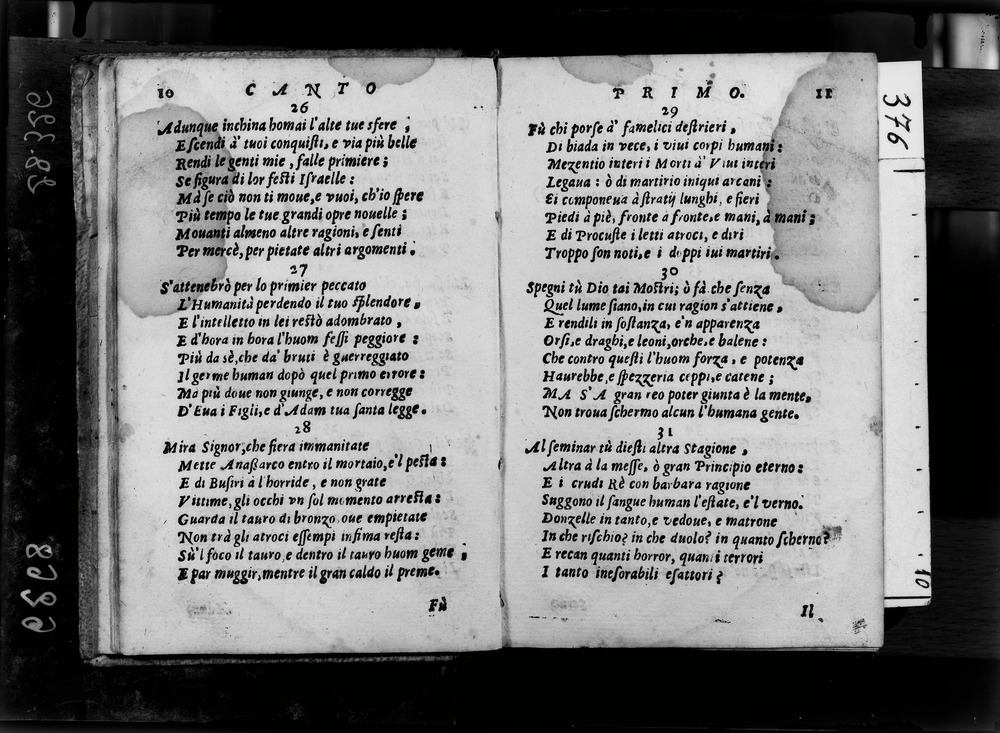 10 CANTO
26
Adunque inchina homai l'alte tue sfere ;
E ſcendi à' tuoi conquiſti, e via più belle
Rendi le genti mie , falle primiere ;
Se figura di lor feſti Iſraelle :
Mà ſe ciò non ti moue, e vuoi, ch'io ſpere
Più tempo le tue grandi opre nouelle ;
Mouanti almeno altre ragioni, e ſenti
Per mercè, per pietate altri argomenti .
27
S'attenebrò per lo primier peccato
L'Humanità perdendo il tuo ſplendore ,
E l'intelletto in lei reſtò adombrato ,
E d'hora in hora l'huom feſſi peggiore :
Più da sè, che da' bruti è guerreggiato
Il germe human dopò quel primo errore :
Ma più doue non giunge, e non corregge
D'Eua i Figli, e d'Adam tua ſanta legge .
28
Mira Signor, che fiera immanitate
Mette Anaßarco entro il mortaio, e'l peſta :
E di Buſiri à l'horride , e non grate
Vittime, gli occhi vn ſol momento arreſta :
Guarda il tauro di bronzo, oue empietate
Non trà gli atroci eſſempi infima reſta :
Sù'l foco il tauro, e dentro il tauro huom geme ,
E par muggir, mentre il gran caldo il preme.
Fù
PRIMO. 11
29
Fù chi porſe à' famelici deſtrieri ,
Di biada in vece, i viui corpi humani :
Mezentio interi i Morti à' Viui interi
Legaua : ò di martirio iniqui arcani :
Ei componeua à ſtratij lunghi, e fieri
Piedi à piè, fronte à fronte, e mani, à mani ;
E di Procuſte i letti atroci, e diri
Troppo ſon noti, e i doppi iui martiri .
30
Spegni tù Dio tai Moſtri; ò fà che ſenza
Quel lume ſiano, in cui ragion s'attiene ,
E rendili in ſoſtanza, e'n apparenza
Orſi, e draghi, e leoni, orche, e balene :
Che contro queſti l'huom forza , e potenza
Haurebbe, e ſpezzeria ceppi, e catene ;
MA S'A gran reo poter giunta è la mente,
Non troua ſchermo alcun l'humana gente.
31
Al ſeminar tù dieſti altra Stagione ,
Altra à la meſſe, ò gran Principio eterno :
E i crudi Rè con barbara ragione
Suggono il ſangue human l'eſtate, e'l verno.
Donzelle in tanto, e vedoue, e matrone
In che riſchio? in che duolo? in quanto ſcherno?
E recan quanti horror, quanti terrori
I tanto ineſorabili eſattori ?
Il
376
10